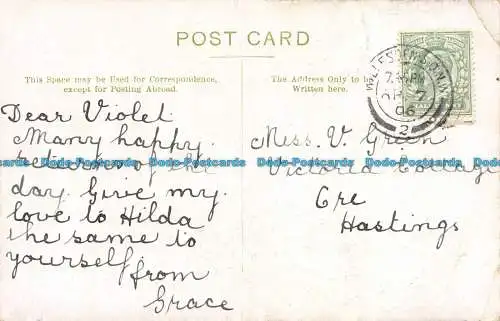 POST CARD
This Space may be Used for Correspondence,
except for Posting Abroad.
Dear Violet
Many happy
returns of the
day. Give my
love to Hilda
the same to
yourself.
from
Grace
The Address Only to be
Written here.
Miss. V. Green
Victoria Cottage
Ore
Hastings
7
06
2
Dodo-Postcards Dodo-Postcards Dodo-Postcards Dodo-Postcards Dodo-Postcards